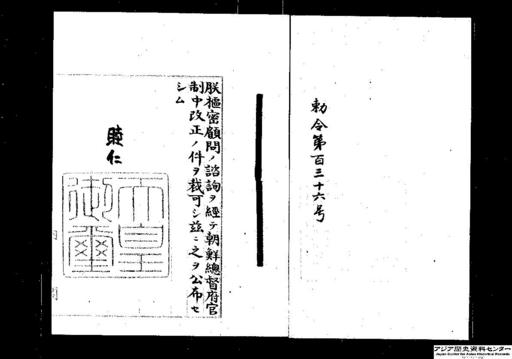 勅令第百三十六号
朕樞密顧問ノ諮詢ヲ経テ朝鮮總督府官
制中改正ノ件ヲ裁可シ茲ニ之ヲ公布セ
シム
睦仁
天皇
御璽
アジア歴史資料センター
Japan Center for Asian Historical Records